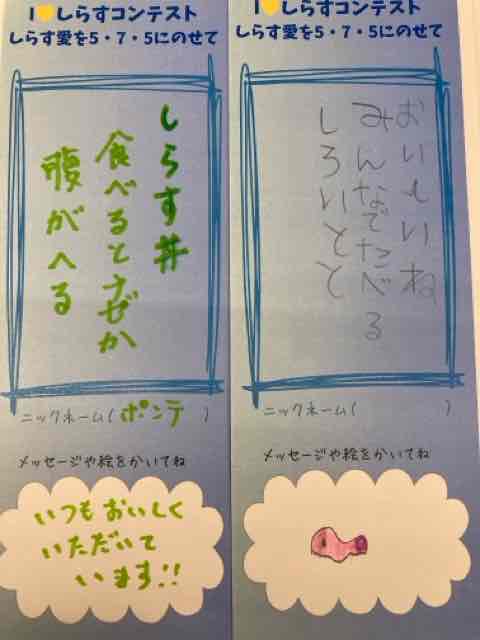 I💛しらすコンテスト
しらす愛を5・7・5にのせて
しらす丼
食べるとなぜか
腹がへる
ニックネーム(ポンテ)
メッセージや絵をかいてね
いつもおいしく
いただいて
います!!
I💛しらすコンテスト
しらす愛を5・7・5にのせて
おいしいね
みんなでたべる
しろいとと
ニックネーム( )
メッセージや絵をかいてね